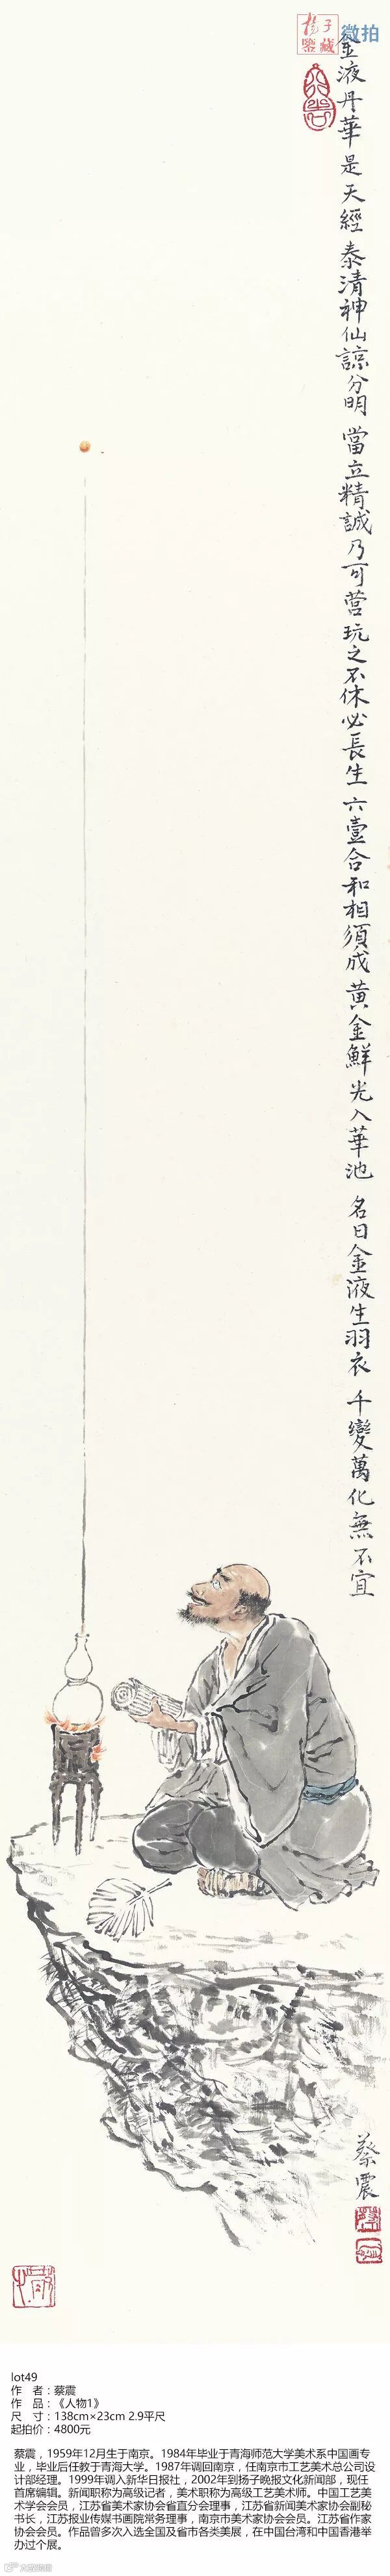 揚子
鑒藏
微拍
金液丹華是天經 泰清神仙諒分明 當立精誠乃可营 玩之不休必長生 六壹合和相須成 黄金鮮光入華池 名曰金液生羽衣 千變萬化無不宜
蔡震
lot49
作 者：蔡震
作 品：《人物1》
尺 寸：138cm×23cm 2.9平尺
起拍价：4800元
蔡震，1959年12月生于南京。1984年毕业于青海师范大学美术系中国画专
业，毕业后任教于青海大学。1987年调回南京，任南京市工艺美术总公司设
计部经理。1999年调入新华日报社，2002年到扬子晚报文化新闻部，现任
首席编辑。新闻职称为高级记者，美术职称为高级工艺美术师。中国工艺美
术学会会员，江苏省美术家协会省直分会理事，江苏省新闻美术家协会副秘
书长，江苏报业传媒书画院常务理事，南京市美术家协会会员。江苏省作家
协会会员。作品曾多次入选全国及省市各类美展，在中国台湾和中国香港举
办过个展。